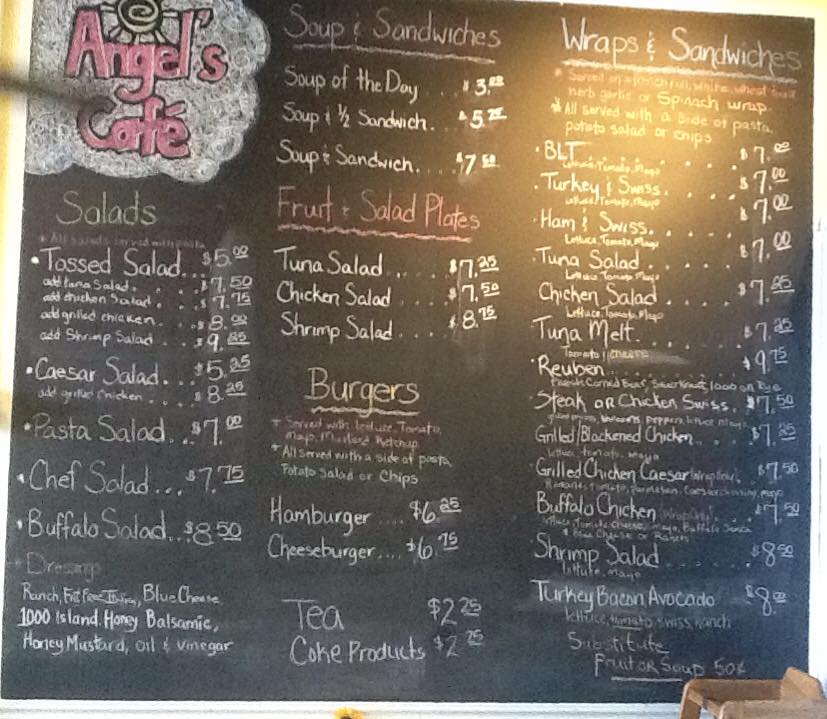 Angel's
Café
Salads
* All salads served with pasta
• Tossed Salad... $5.00
add tuna Salad. . . . $7.50
add chicken Salad. . . $7.75
add grilled chicken. . . $8.00
add Shrimp Salad . . $9.25
• Caesar Salad... $5.25
add grilled Chicken. . . $8.25
• Pasta Salad... $7.00
• Chef Salad... $7.75
• Buffalo Salad... $8.50
* Dressings
Ranch, Fat free Italian, Blue Cheese
1000 Island, Honey Balsamic,
Honey Mustard, oil & vinegar
Soup & Sandwiches
Soup of the Day . . . $3.00
Soup & ½ Sandwich. . $5.75
Soup & Sandwich.... $7.50
Fruit & Salad Plates
Tuna Salad . . . . $7.25
Chicken Salad . . . $7.50
Shrimp Salad . . . . $8.75
Burgers
* Served with lettuce, Tomato,
Mayo, Mustard, Ketchup
* All served with a side of pasta,
Potato Salad or Chips
Hamburger .... $6.25
Cheeseburger.... $6.75
Tea $2.25
Coke Products $2.25
Wraps & Sandwiches
* Served on a french roll, white, wheat
herb garlic or Spinach wrap.
* All served with a side of pasta,
potato salad or chips
• BLT . . . . . . $7.00
Lettuce, Tomato, Mayo
• Turkey & Swiss. . . . $7.00
Lettuce, Tomato, Mayo
• Ham & Swiss. . . . . $7.00
Lettuce, Tomato, Mayo
• Tuna Salad . . . . . $7.00
Lettuce, Tomato, Mayo
Chicken Salad . . . . $7.25
Lettuce, Tomato, Mayo
Tuna Melt. . . . . $7.25
Tomato & Cheese
• Reuben . . . . . . $9.75
Corned Beef, Sauerkraut, 1000 on Rye
• Steak OR Chicken Swiss. . $7.50
onions, peppers, lettuce, mayo
Grilled/Blackened Chicken. . . $7.25
lettuce, tomato, mayo
• Grilled Chicken Caesar . . $7.50
Romaine, Tomato, Parmesan, Caesar dressing, mayo
Buffalo Chicken (Wrap Only) . . $7.50
lettuce, Tomato, cheese, mayo, Buffalo Sauce
& Blue Cheese or Ranch
• Shrimp Salad . . . . . $8.50
lettuce, mayo
Turkey Bacon Avocado $8.00
lettuce, tomato, swiss, ranch
Substitute
Fruit OR Soup 50¢